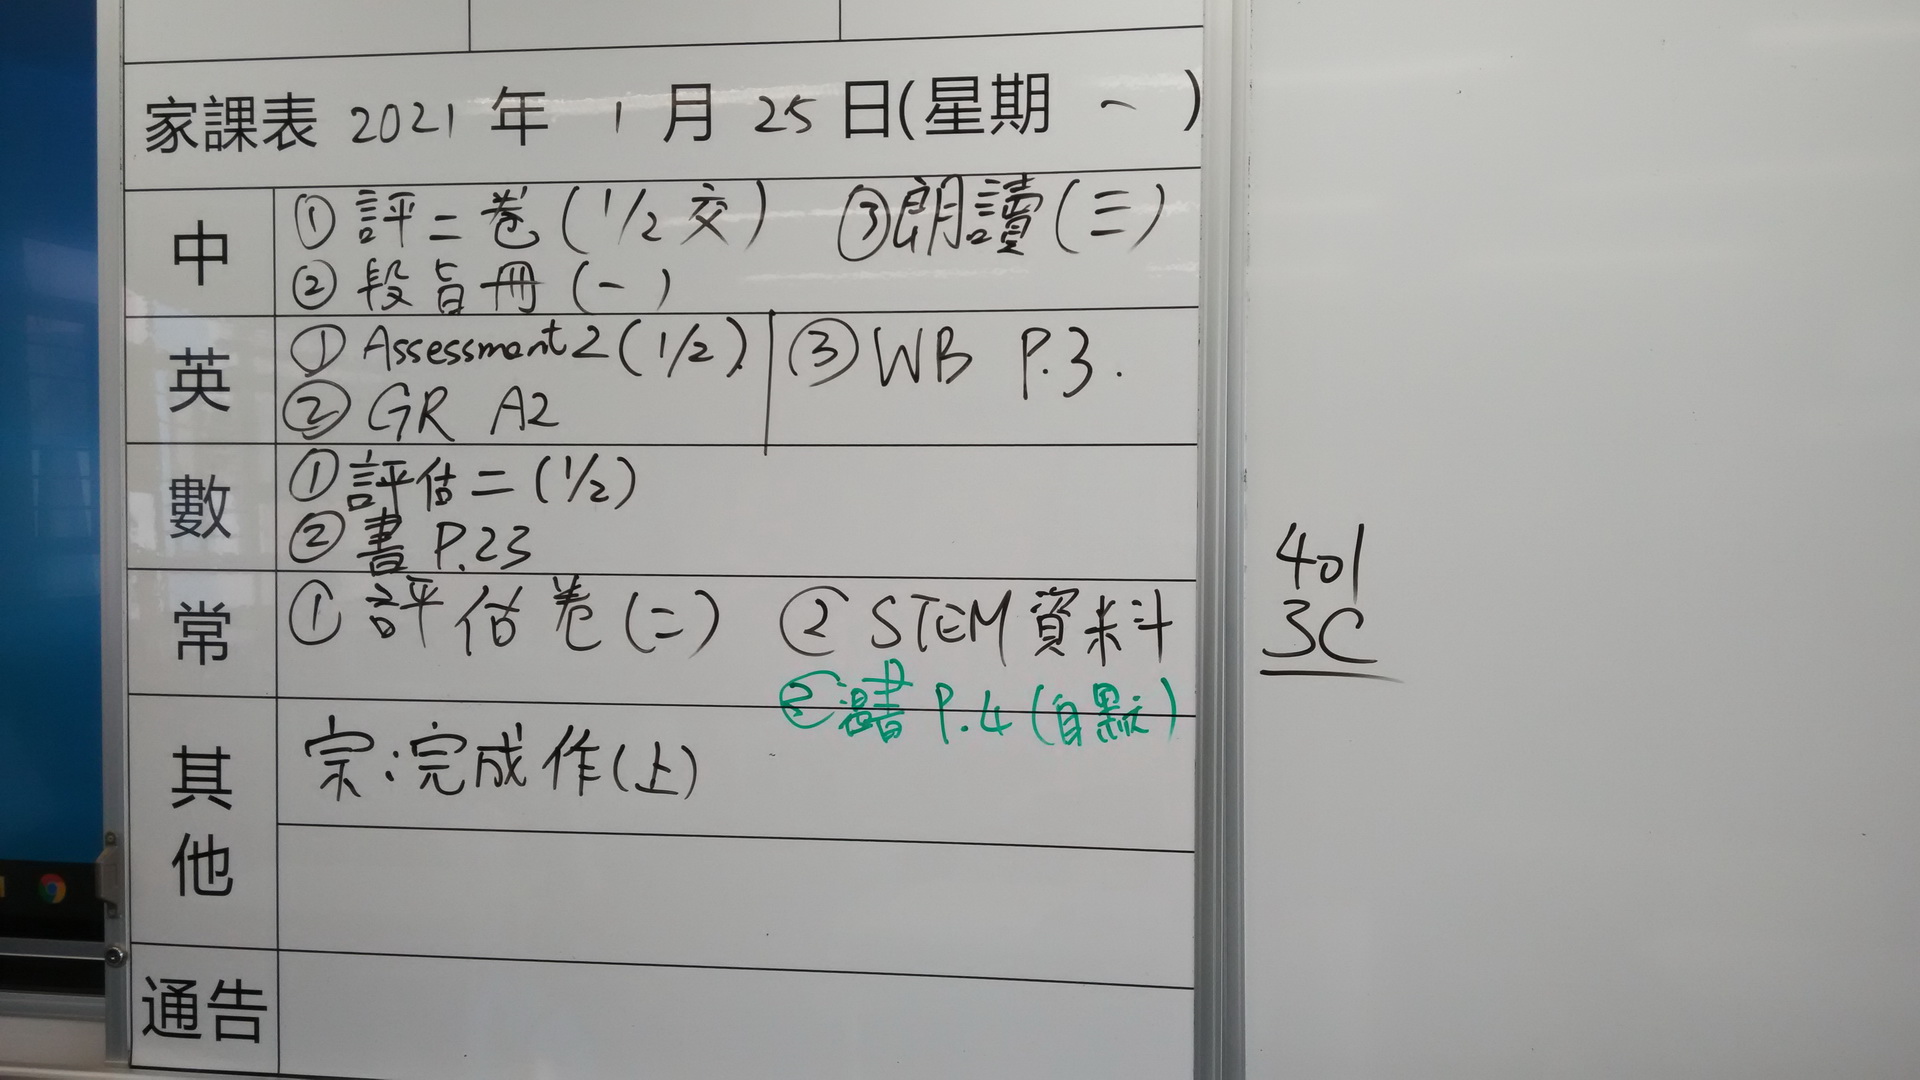 家課表 2021 年 1 月 25 日(星期 一)
中
① 評二卷(1/2 交) ③朗讀(三)
② 段旨冊(一)
英
① Assessment 2 (1/2) ③ WB P.3.
② GR A2
數
① 評估二(1/2)
② 書 P.23
常
① 評估卷(二) ② STEM資料
② 溫書 P.4 (自默)
其他
宗:完成作(上)
通告
401
3C